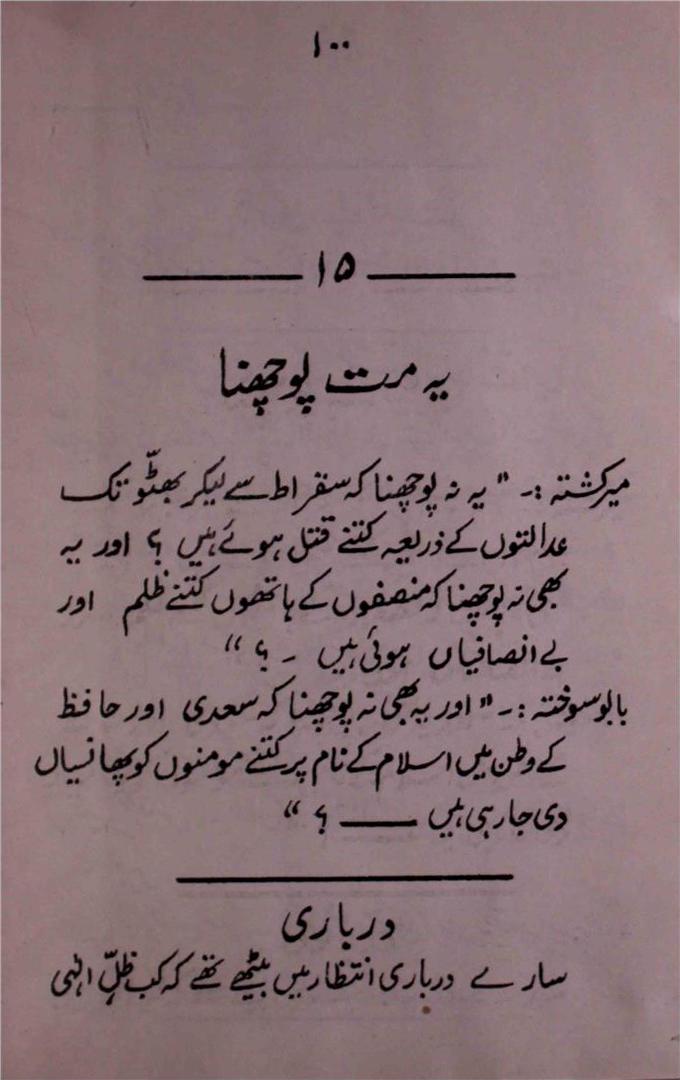 ۱۰۰
۱۵
یہ مت پوچھنا
میر کشتہ :۔ " یہ نہ پوچھنا کہ سقراط سے لیکر بھٹّو تک
عدالتوں کے ذریعہ کتنے قتل ہوئے ہیں ؟ اور یہ
بھی نہ پوچھنا کہ منصفوں کے ہاتھوں کتنے ظلم اور
بے انصافیاں ہوئی ہیں ۔ ؟ "
بابو سوختہ :۔ " اور یہ بھی نہ پوچھنا کہ سعدی اور حافظ
کے وطن میں اسلام کے نام پر کتنے مومنوں کو پھانسیاں
دی جا رہی ہیں ــــ ؟ "
درباری
سارے درباری انتظار میں بیٹھے تھے کہ کب ظلِّ الٰہی